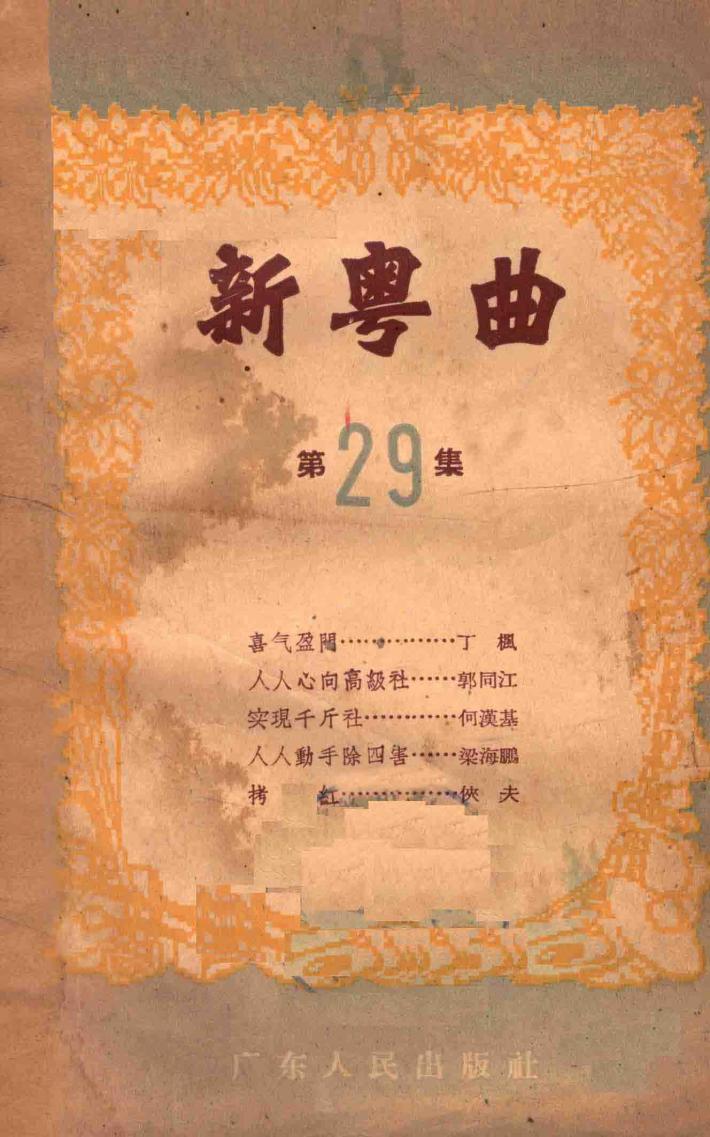 新粤曲
第29集
喜气盈門……………丁楓
人人心向高級社……郭同江
实現千斤社…………何漢基
人人動手除四害……梁海鵬
拷紅……………俠夫
广东人民出版社